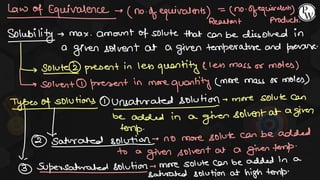 Law of Equivalence → (no. of equivalents) = (no. of equivalents)
Reactant Product
Solubility → max. amount of solute that can be dissolved in
a given solvent at a given temperature and pressure.
→ Solute ② present in less quantity (less mass or moles)
→ Solvent ① present in more quantity (more mass or moles)
Types of solutions ① Unsaturated solution → more solute can
be added in a given solvent at a given
temp.
② Saturated solution → no more solute can be added
to a given solvent at a given temp.
③ Supersaturated solution → more solute can be added in a
saturated solution at high temp.